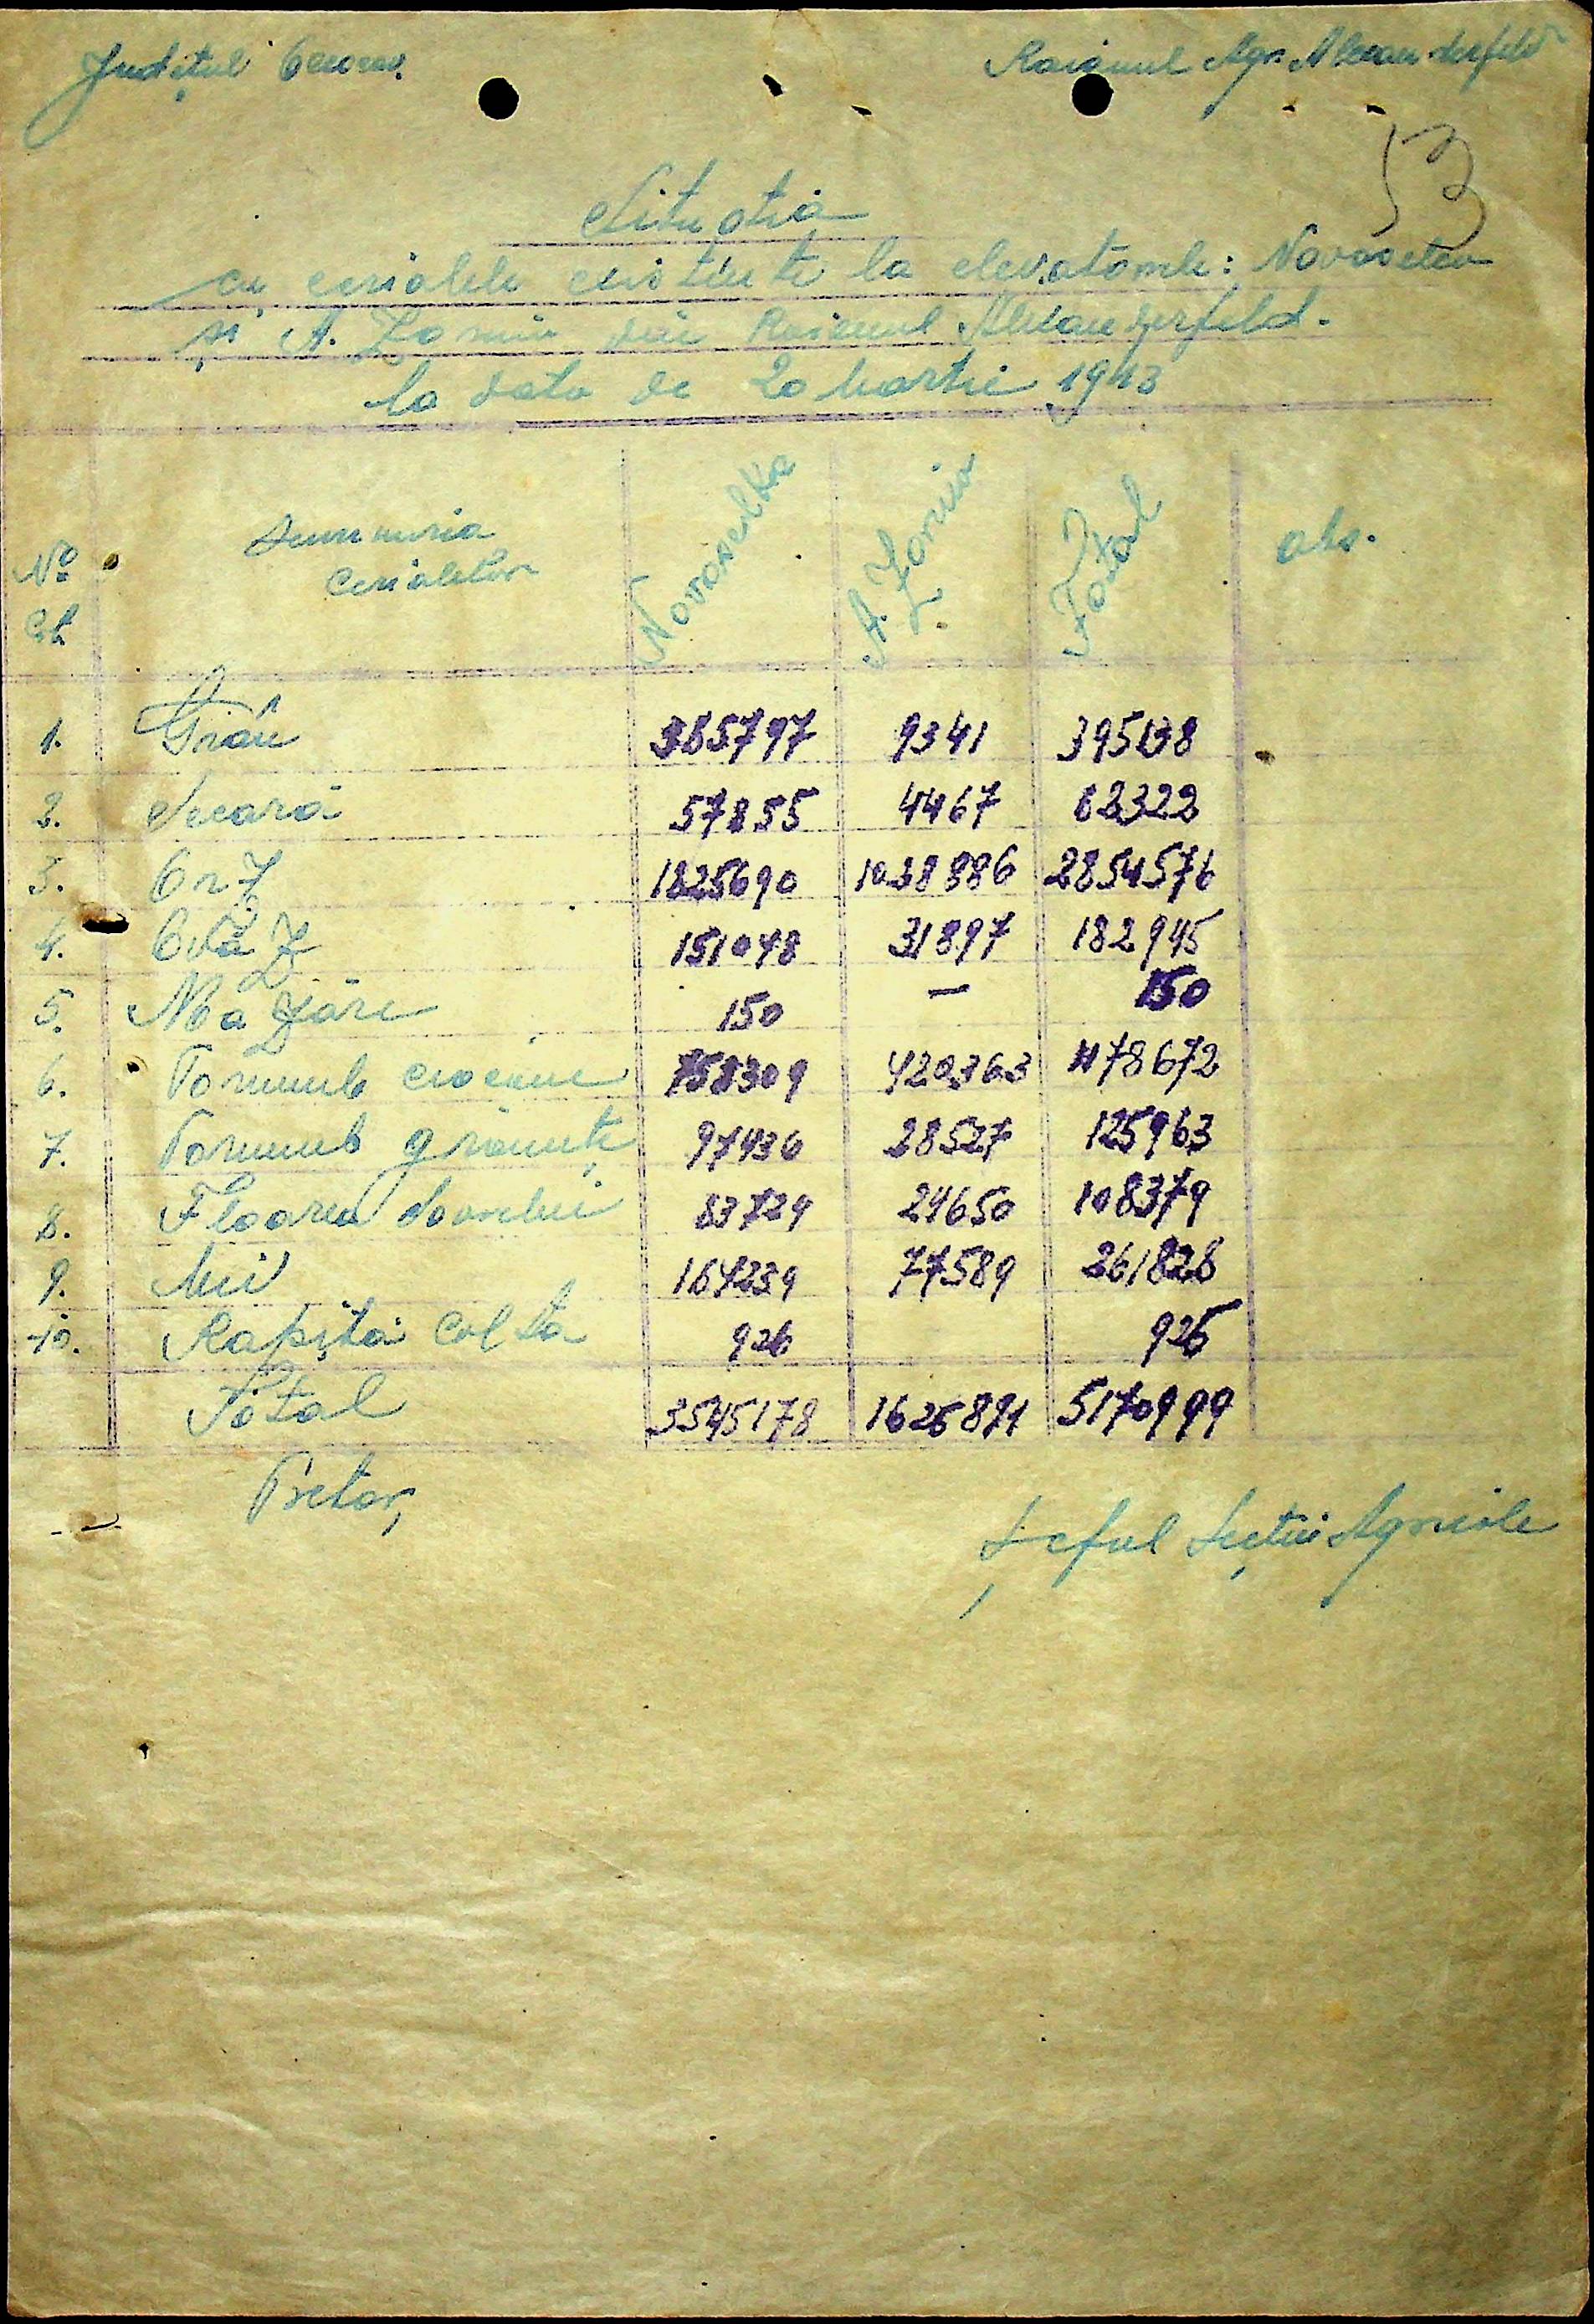 Județul Oceacov. Raionul Agr. Alexanderfeld
53
Situația
cu cerialele existente la elevatoarele: Novoselca
și A. Zorniu din Raionul Alexanderfeld.
la data de 20 Martie 1943
No Crt. Denumirea Cerialelor Novoselka A. Zorniu Total obs.
1. Grâu 385797 9341 395138
2. Secară 57855 4467 62322
3. Orz 1825690 1038886 2854576
4. Ovăz 151048 31897 182945
5. Mazăre 150 — 150
6. Porumb ciocane 758309 420363 1178672
7. Porumb grăunțe 97436 28527 125963
8. Floarea Soarelui 83729 24650 108379
9. Mei 184239 77589 261828
10. Rapița Colza 926 926
Total 3545178 1625821 5170999
Pretor, Șeful Secției Agricole